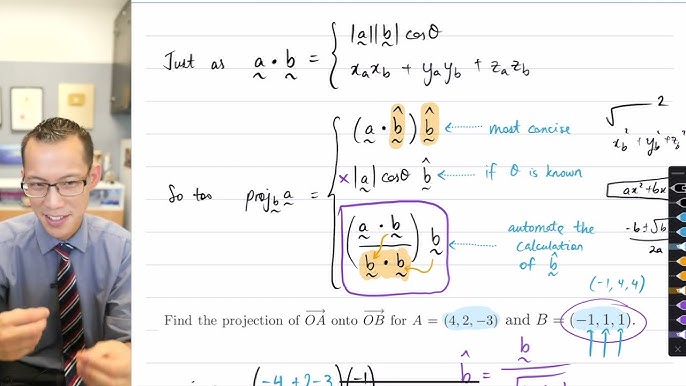 Just as a · b = { |a||b| cosθ
x_a x_b + y_a y_b + z_a z_b
So too proj_b a = { (a · b̂) b̂ most concise
× |a| cosθ b̂ if θ is known
(a · b / b · b) b automate the calculation of b̂
√ 2
x_b² + y_b² + z_b²
ax² + bx
-b ± √b
2a
(-1, 4, 4)
Find the projection of OA→ onto OB→ for A = (4, 2, −3) and B = (−1, 1, 1).
(-4 + 2 - 3) (-1)
b̂ = b / √